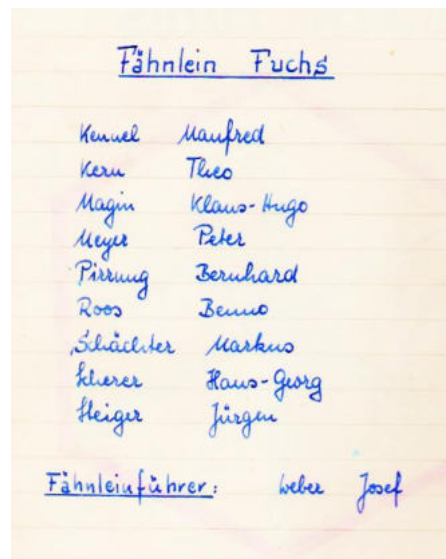 Fähnlein Fuchs
Kennel Manfred
Kern Theo
Magin Klaus-Hugo
Meyer Peter
Pirrung Bernhard
Roos Benno
Schächter Markus
Scherer Hans-Georg
Steiger Jürgen
Fähnleinführer: Weber Josef